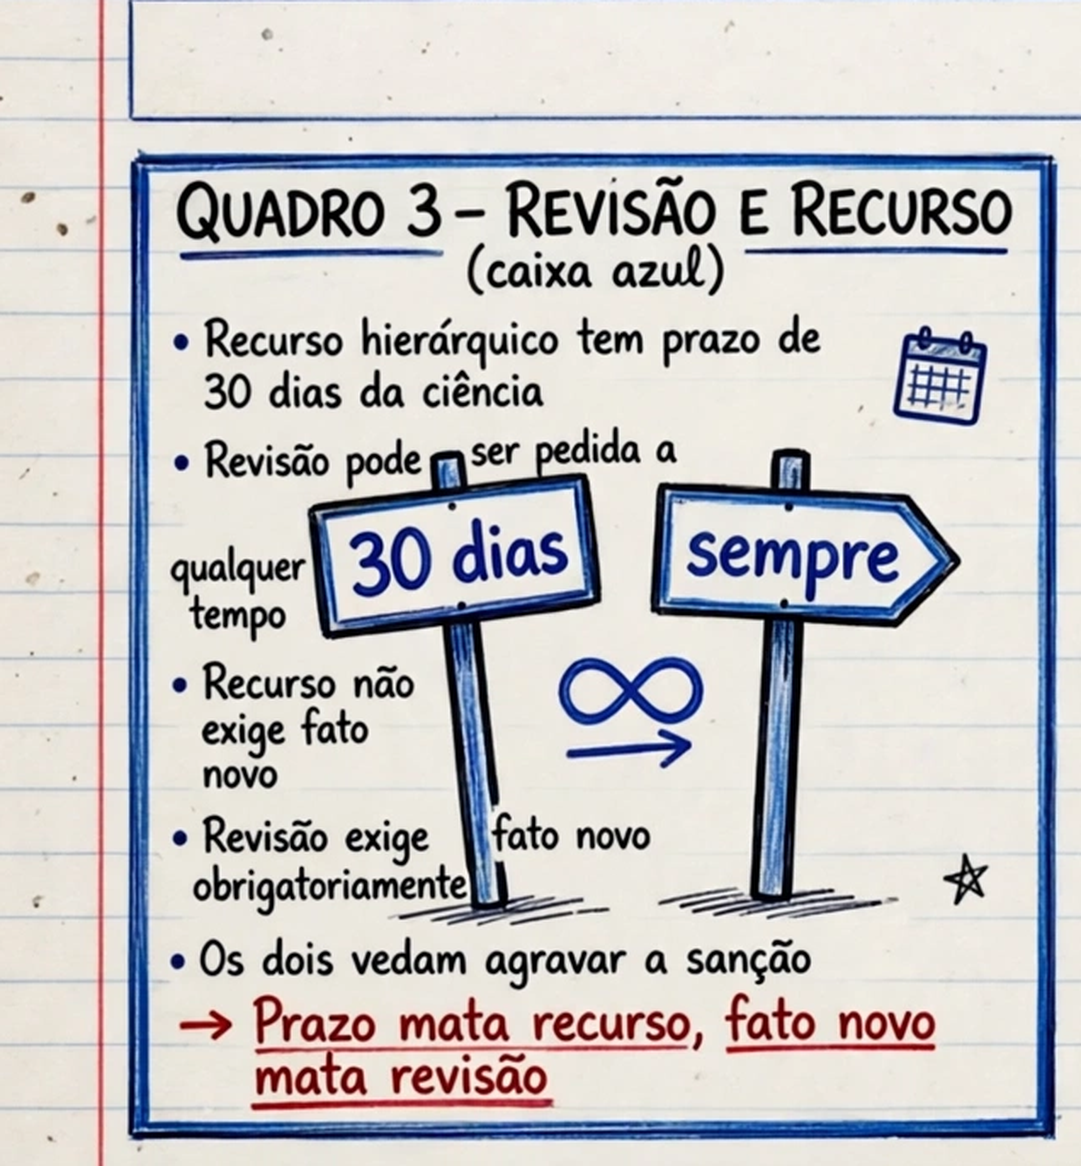 QUADRO 3 – REVISÃO E RECURSO
(caixa azul)
• Recurso hierárquico tem prazo de
30 dias da ciência
• Revisão pode ser pedida a
qualquer
tempo
30 dias
sempre
• Recurso não
exige fato
novo
• Revisão exige fato novo
obrigatoriamente
• Os dois vedam agravar a sanção
→ Prazo mata recurso, fato novo
mata revisão